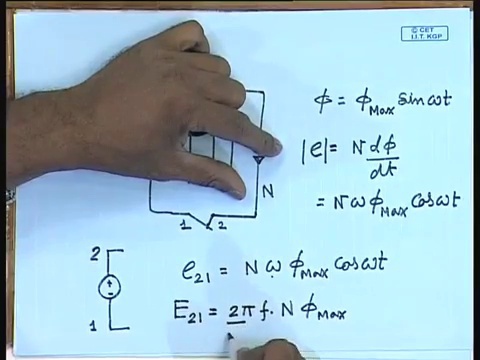 © CET
I.I.T. KGP
ϕ = ϕMax sin ωt
|e| = N dϕ/dt
= N ω ϕMax cos ωt
N
1 2
2
1
e21 = N ω ϕMax cos ωt
E21 = 2π f. N ϕMax